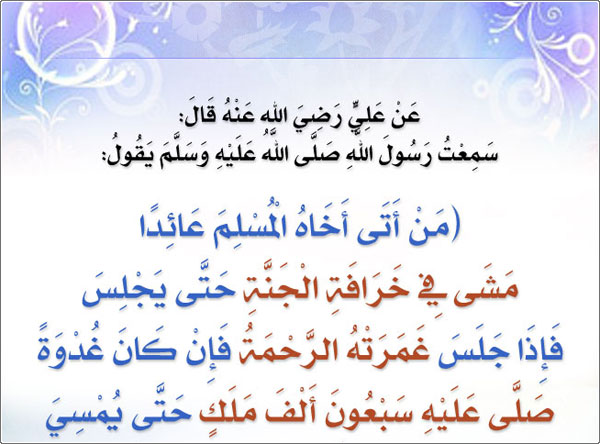 عَنْ عَلِيٍّ رَضِيَ اللهُ عَنْهُ قَالَ:
سَمِعْتُ رَسُولَ اللَّهِ صَلَّى اللَّهُ عَلَيْهِ وَسَلَّمَ يَقُولُ:
(مَنْ أَتَى أَخَاهُ الْمُسْلِمَ عَائِدًا
مَشَى فِي خَرَافَةِ الْجَنَّةِ حَتَّى يَجْلِسَ
فَإِذَا جَلَسَ غَمَرَتْهُ الرَّحْمَةُ فَإِنْ كَانَ غُدْوَةً
صَلَّى عَلَيْهِ سَبْعُونَ أَلْفَ مَلَكٍ حَتَّى يُمْسِيَ